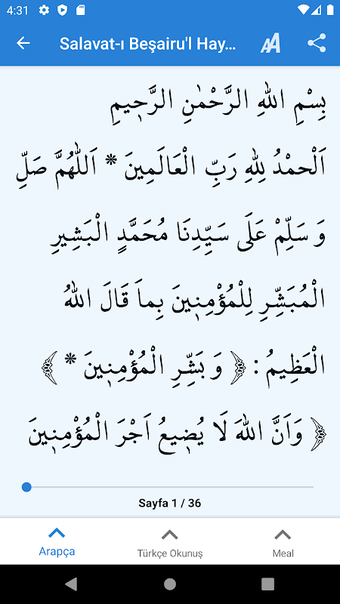 4:31
Salavat-ı Beşairu'l Hay...
بِسْمِ اللهِ الرَّحْمٰنِ الرَّحٖيمِ
اَلْحَمْدُ لِلهِ رَبِّ الْعَالَمِينَ * اَللّٰهُمَّ صَلِّ
وَ سَلِّمْ عَلَى سَيِّدِنَا مُحَمَّدٍ الْبَشِيرِ
الْمُبَشِّرِ لِلْمُؤْمِنٖينَ بِماَ قَالَ اللهُ
الْعَظِيمُ : ﴿ وَ بَشِّرِ الْمُؤْمِنٖينَ * ﴾
﴿ وَاَنَّ اللهَ لَا يُضٖيعُ اَجْرَ الْمُؤْمِنٖينَ
Sayfa 1 / 36
Arapça
Türkçe Okunuş
Meal